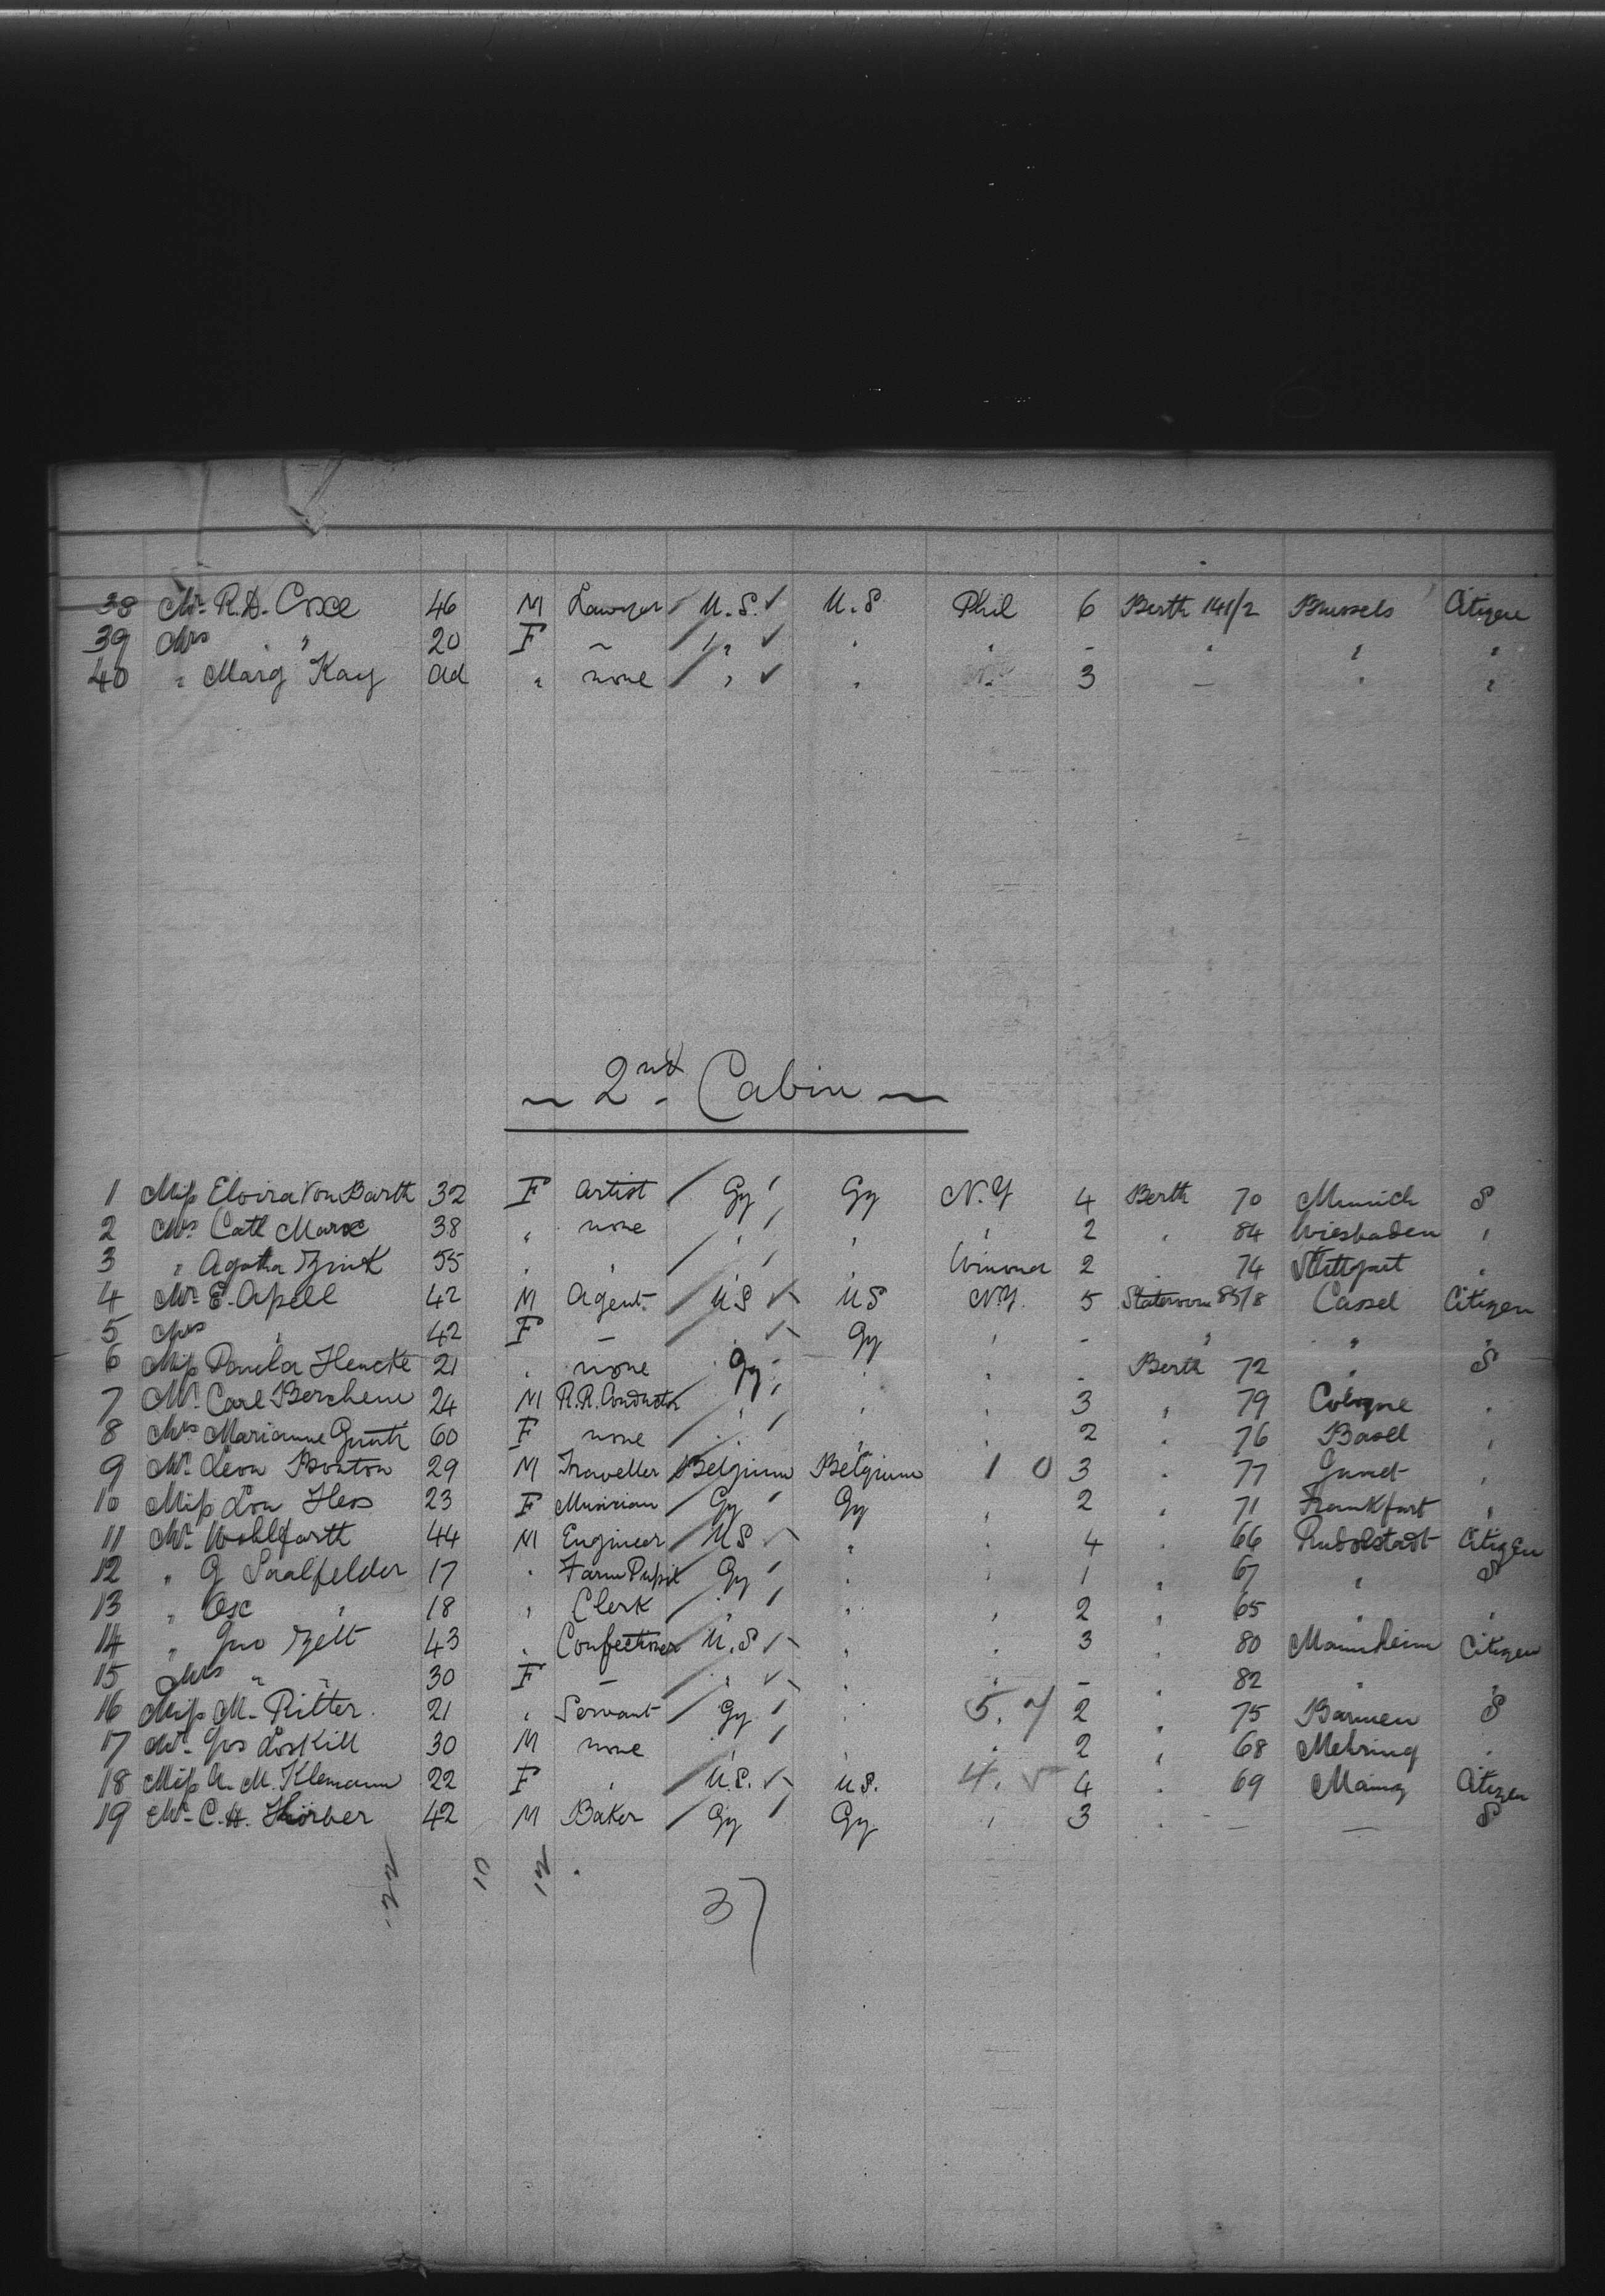 38 Mr. R.D. Coxe 46 M Lawyer U.S. U.S Phil 6 Berth 141/2 Brussels Citizen
39 Mrs " " 20 F – " " " - " " "
40 " Marg Kay ad " none " " 3 – " "
– 2nd Cabin –
1 Miss Elvira Von Barth 32 F Artist Gy Gy N.Y 4 Berth 70 Munich S
2 Mrs Cath Marx 38 " none " " " 2 " 84 Wiesbaden "
3 " Agatha Zink 55 " " " " Winona 2 " 74 Stuttgart "
4 Mr E. Apell 42 M Agent US US N.Y. 5 Stateroom 85/8 Cassel Citizen
5 Mrs " 42 F – " Gy " - " " "
6 Miss Paula Hencke 21 " none Gy " " - Berth 72 " S
7 Mr Carl Berchem 24 M R.R. Conductr " " " 3 " 79 Cologne "
8 Mrs Marianne 60 F none " " " 2 " 76 Basel "
9 Mr. Leon Bonton 29 M Traveller Belgium Belgium 1 0 3 " 77 "
10 Miss Lou Hess 23 F Musician Gy Gy " 2 " 71 Frankfurt "
11 Mr. Wohlfarth 44 M Engineer US " " 4 " 66 Rudolstadt Citizen
12 " G Saalfelder 17 " Farm Pupil Gy " " 1 " 67 " S
13 " Osc " 18 " Clerk " " " 2 " 65 " "
14 " Jno Zelt 43 " Confectioner U.S " " 3 " 80 Mannheim Citizen
15 Mrs " " 30 F – " " " - " 82 " "
16 Miss M. Ritter 21 " Servant Gy " 5. 7 2 " 75 Barmen S
17 Mr. Jos Loskill 30 M none " " " 2 " 68 Mehring "
18 Miss A. M. Klemann 22 F " U.S. U.S. 4. 5 4 " 69 Mainz Citizen
19 Mr. C.H. Thörber 42 M Baker Gy Gy " 3 " – – S
22 10 12
37